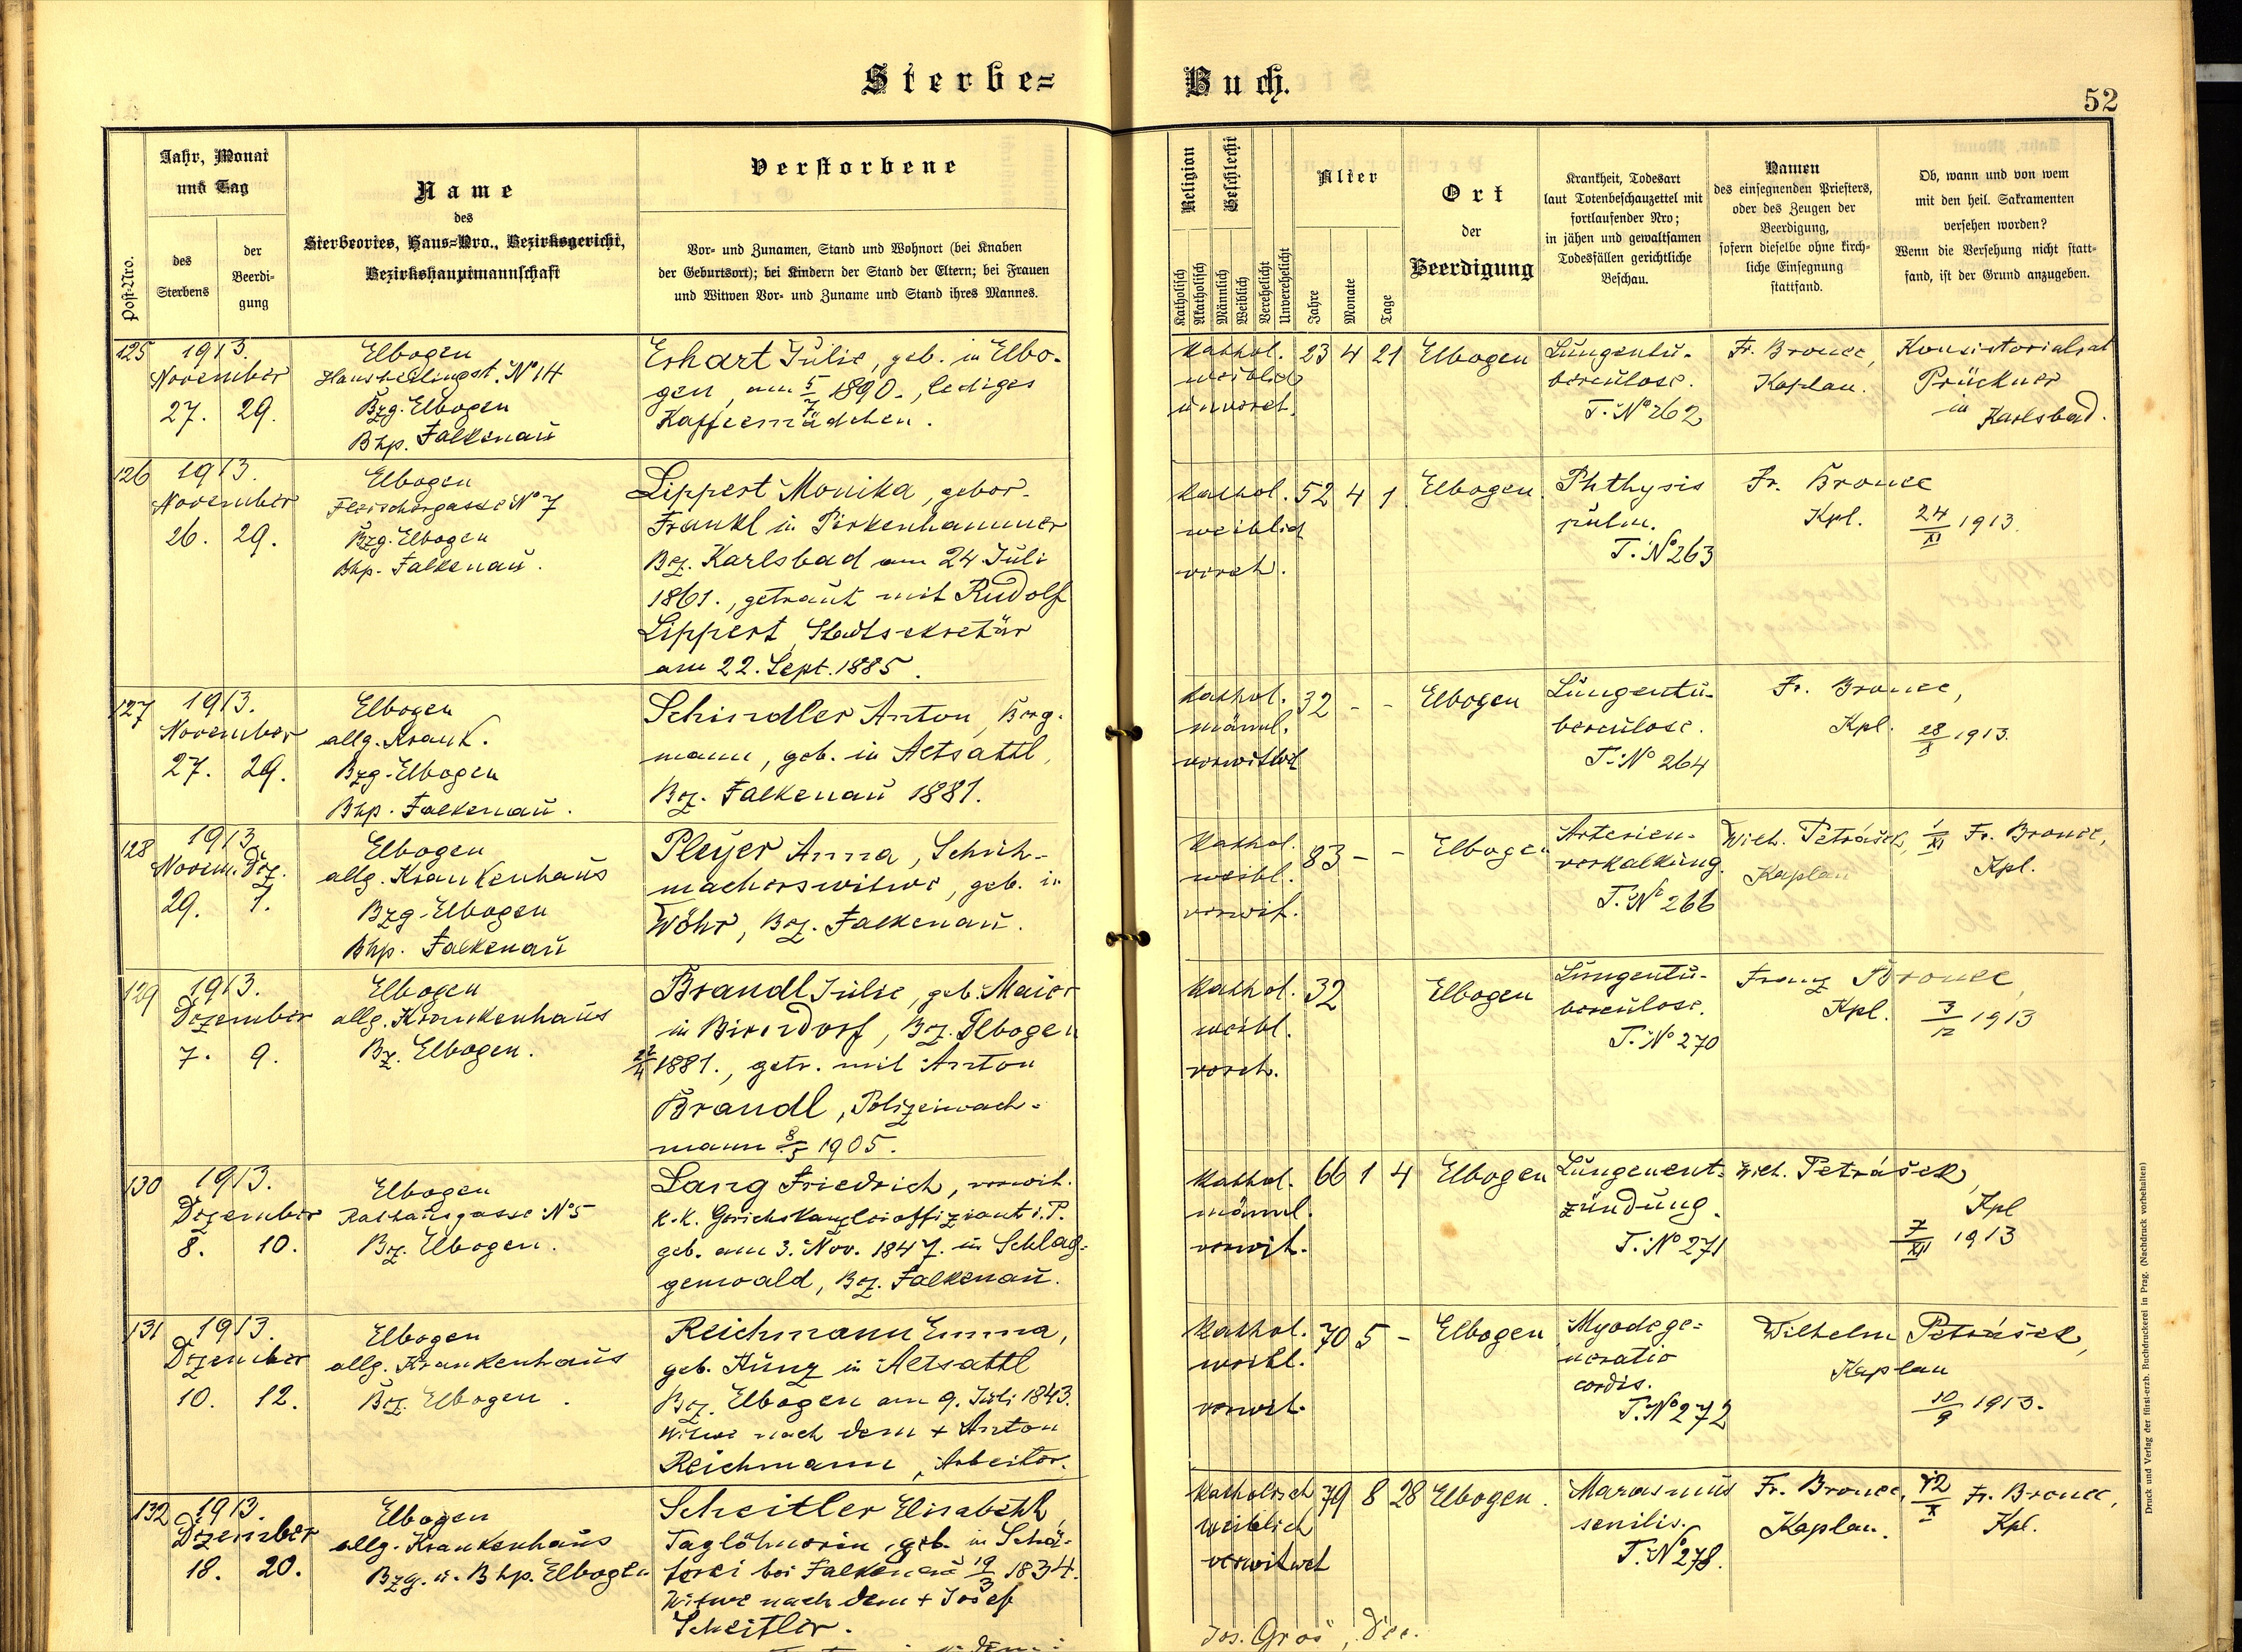 Sterbe=
Buch.
52
Post-Nro.
Jahr, Monat
und Tag
des
Sterbens
der
Beerdi-
gung
Name
des
Sterbeortes, Haus=Nro., Bezirksgericht,
Bezirkshauptmannschaft
Verstorbene
Vor- und Zunamen, Stand und Wohnort (bei Knaben
der Geburtsort); bei Kindern der Stand der Eltern; bei Frauen
und Witwen Vor- und Zuname und Stand ihres Mannes.
Religion
Geschlecht
Katholisch
Akatholisch
Männlich
Weiblich
Verehelicht
Unverehelicht
Alter
Jahre
Monate
Tage
Ort
der
Beerdigung
Krankheit, Todesart
laut Totenbeschauzettel mit
fortlaufender Nro;
in jähen und gewaltsamen
Todesfällen gerichtliche
Beschau.
Namen
des einsegnenden Priesters,
oder des Zeugen der
Beerdigung,
sofern dieselbe ohne kirch-
liche Einsegnung
stattfand.
Ob, wann und von wem
mit den heil. Sakramenten
versehen worden?
Wenn die Versehung nicht statt-
fand, ist der Grund anzugeben.
125
1913.
November
27. 29.
Elbogen
Hausheilingst. No 14
Bzg. Elbogen
Bhp. Falkenau
Erhart Julie, geb. in Elbo-
gen, am 5/7 1890., lediges
Kaffeemädchen.
Kathol.
weiblich
unvereh.
23 4 21
Elbogen
Lungentu-
berculose.
T. No 262
Fr. Bronec,
Kaplan.
Konsistorialrat
Prückner
in
Karlsbad.
126
1913.
November
26. 29.
Elbogen
Fleischergasse No 7
Bzg. Elbogen
Bhp. Falkenau.
Lippert Monika, gebor-
Frankl in Pirkenhammer
Bez. Karlsbad am 24 Juli
1861., getraut mit Rudolf
Lippert, Stadtsekretär
am 22. Sept. 1885.
Kathol.
weiblich
vereh.
52 4 1
Elbogen.
Phthysis
pulm.
T. No 263
Fr. Bronec
Kpl.
24/XI 1913.
127
1913.
November
27. 29.
Elbogen
allg. Krank.
Bzg. Elbogen
Bhp. Falkenau.
Schindler Anton, Berg-
mann, geb. in Altsattl,
Bez. Falkenau 1881.
Kathol.
männl.
verwitwet
32 - -
Elbogen
Lungentu-
berculose.
T. No 264
Fr. Bronec,
Kpl.
28/X 1913.
128
1913.
Novem. Dez.
29. 1.
Elbogen
allg. Krankenhaus
Bzg. Elbogen
Bhp. Falkenau
Pleyer Anna, Schuh-
macherswitwe, geb. in
Wöhr, Bez. Falkenau.
Kathol.
weibl.
verwit.
83 - -
Elbogen
Arterien-
verkalkung.
T. No 266
Wilh. Petrášek,
Kaplan
1/XI Fr. Bronec,
Kpl.
129
1913.
Dezember
7. 9.
Elbogen
allg. Krankenhaus
Bz. Elbogen.
Brandl Julie, geb. Maier
in Birndorf, Bez. Elbogen
22/4 1881., getr. mit Anton
Brandl, Polizeiwach-
mann 8/5 1905.
Kathol.
weibl.
vereh.
32
Elbogen
Lungentu-
berculose.
T. No 270
Franz Bronec,
Kpl.
3/12 1913
130
1913.
Dezember
8. 10.
Elbogen
Rathausgasse No 5
Bez. Elbogen.
Lang Friedrich, verwit.
k.k. Gerichskanzleioffiziant i. P.
geb. am 3. Nov. 1847. in Schlag-
genwald, Bez. Falkenau.
Kathol.
männl.
verwit.
66 1 4
Elbogen
Lungenent-
zündung.
T. No 271
Wilh. Petrášek,
Kpl
7/XII 1913
131
1913.
Dezember
10. 12.
Elbogen
allg. Krankenhaus
Bez. Elbogen.
Reichmann Emma,
geb. Kunz in Altsattl
Bez. Elbogen am 9. Juli 1843.
Witwe nach dem + Anton
Reichmann, Arbeiter.
Kathol.
weibl.
verwit.
70 5 -
Elbogen
Myodege-
neratio
cordis.
T. No 272
Wilhelm Petrášek,
Kaplan
10/9 1913.
132
1913.
Dezember
18. 20.
Elbogen
allg. Krankenhaus
Bzg. u. Bhp. Elbogen
Scheitler Elisabeth,
Taglöhnerin, geb. in Schä-
ferei bei Falkenau 19/3 1834.
Witwe nach dem + Josef
Scheitler.
Katholisch
weiblich
verwitwet
79 8 28
Elbogen.
Marasmus
senilis.
T. No 278.
Fr. Bronec,
Kaplan.
12/X Fr. Bronec,
Kpl.
Jos. Groš, Dec.
Druck und Verlag der fürst-erzb. Buchdruckerei in Prag. (Nachdruck vorbehalten)